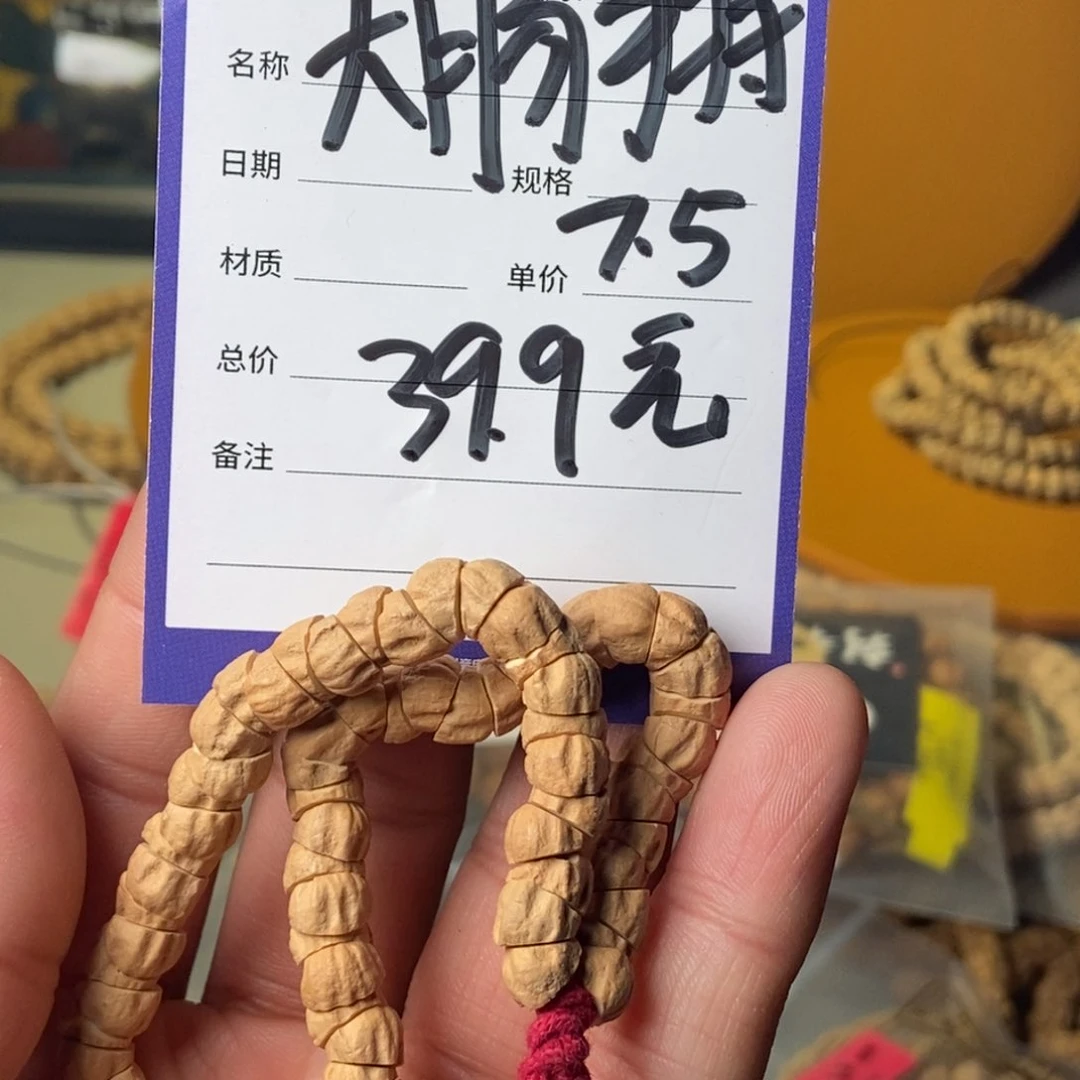 名称 大阴唇猜
日期 规格 7.5
材质 单价
总价 39.9元
备注